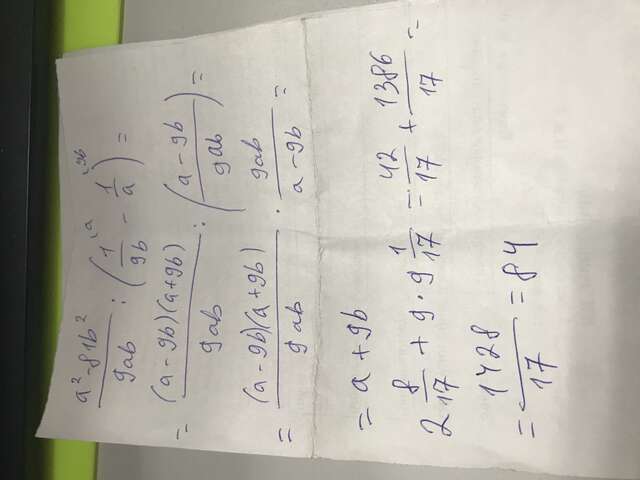 (a²-81b²)/(9ab) : (1/(9b) ^(\a) - 1/a ^(\9b)) =
= ((a-9b)(a+9b))/(9ab) : ((a-9b)/(9ab)) =
= ((a-9b)(a+9b))/(9ab) · (9ab)/(a-9b) =
= a+9b
2 8/17 + 9·9 1/17 = 42/17 + 1386/17 =
= 1428/17 = 84